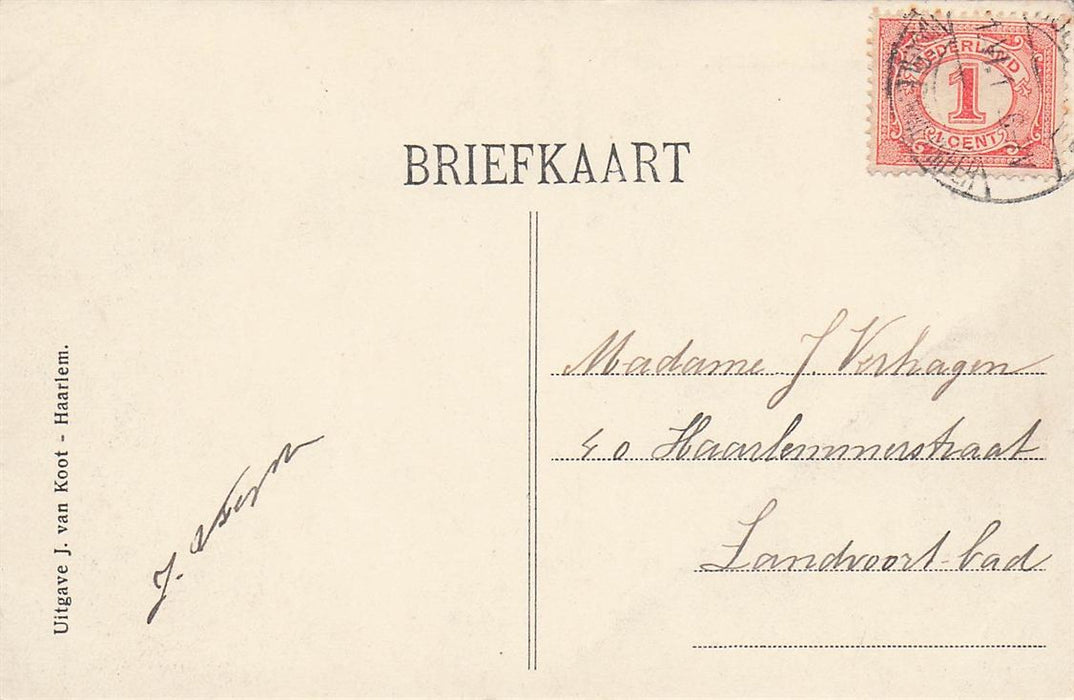 BRIEFKAART
NEDERLAND
1
CENT
Madame J. Verhagen
40 Haarlemmerstraat
Zandvoort-bad
J.
Uitgave J. van Koot - Haarlem.